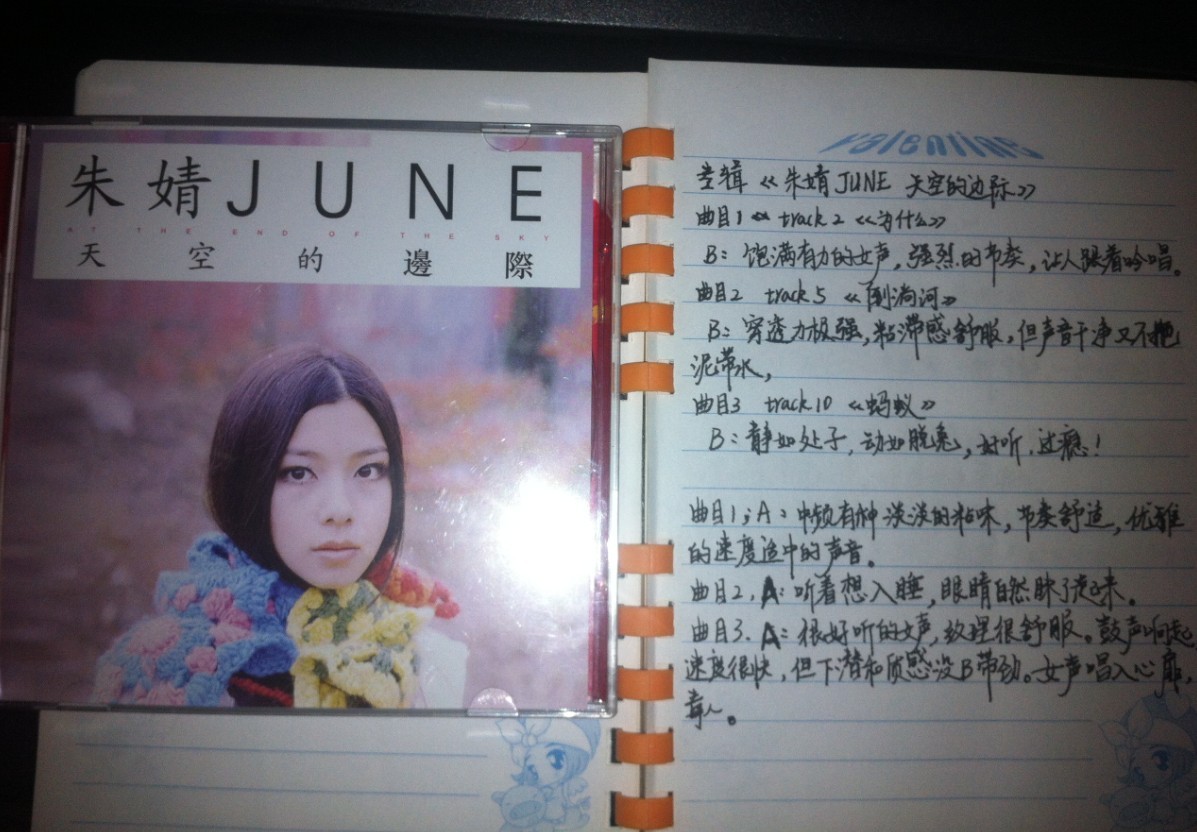 朱婧JUNE
AT THE END OF THE SKY
天空的邊際
Valentine
专辑《朱婧JUNE 天空的边际》
曲目1 track2《为什么》
B：饱满有力的女声，强烈的节奏，让人跟着吟唱。
曲目2 track5《倒淌河》
B：穿透力极强，粘滞感舒服，但声音干净又不拖
泥带水，
曲目3 track10《蚂蚁》
B：静如处子，动如脱兔，好听，过瘾！
曲目1；A：中频有种淡淡的粘味，节奏舒适，优雅
的速度适中的声音。
曲目2，A：听着想入睡，眼睛自然眯了起来。
曲目3．A：很好听的女声，纹理很舒服。鼓声响起，
速度很快，但下潜和质感没B带劲。女声唱入心扉，